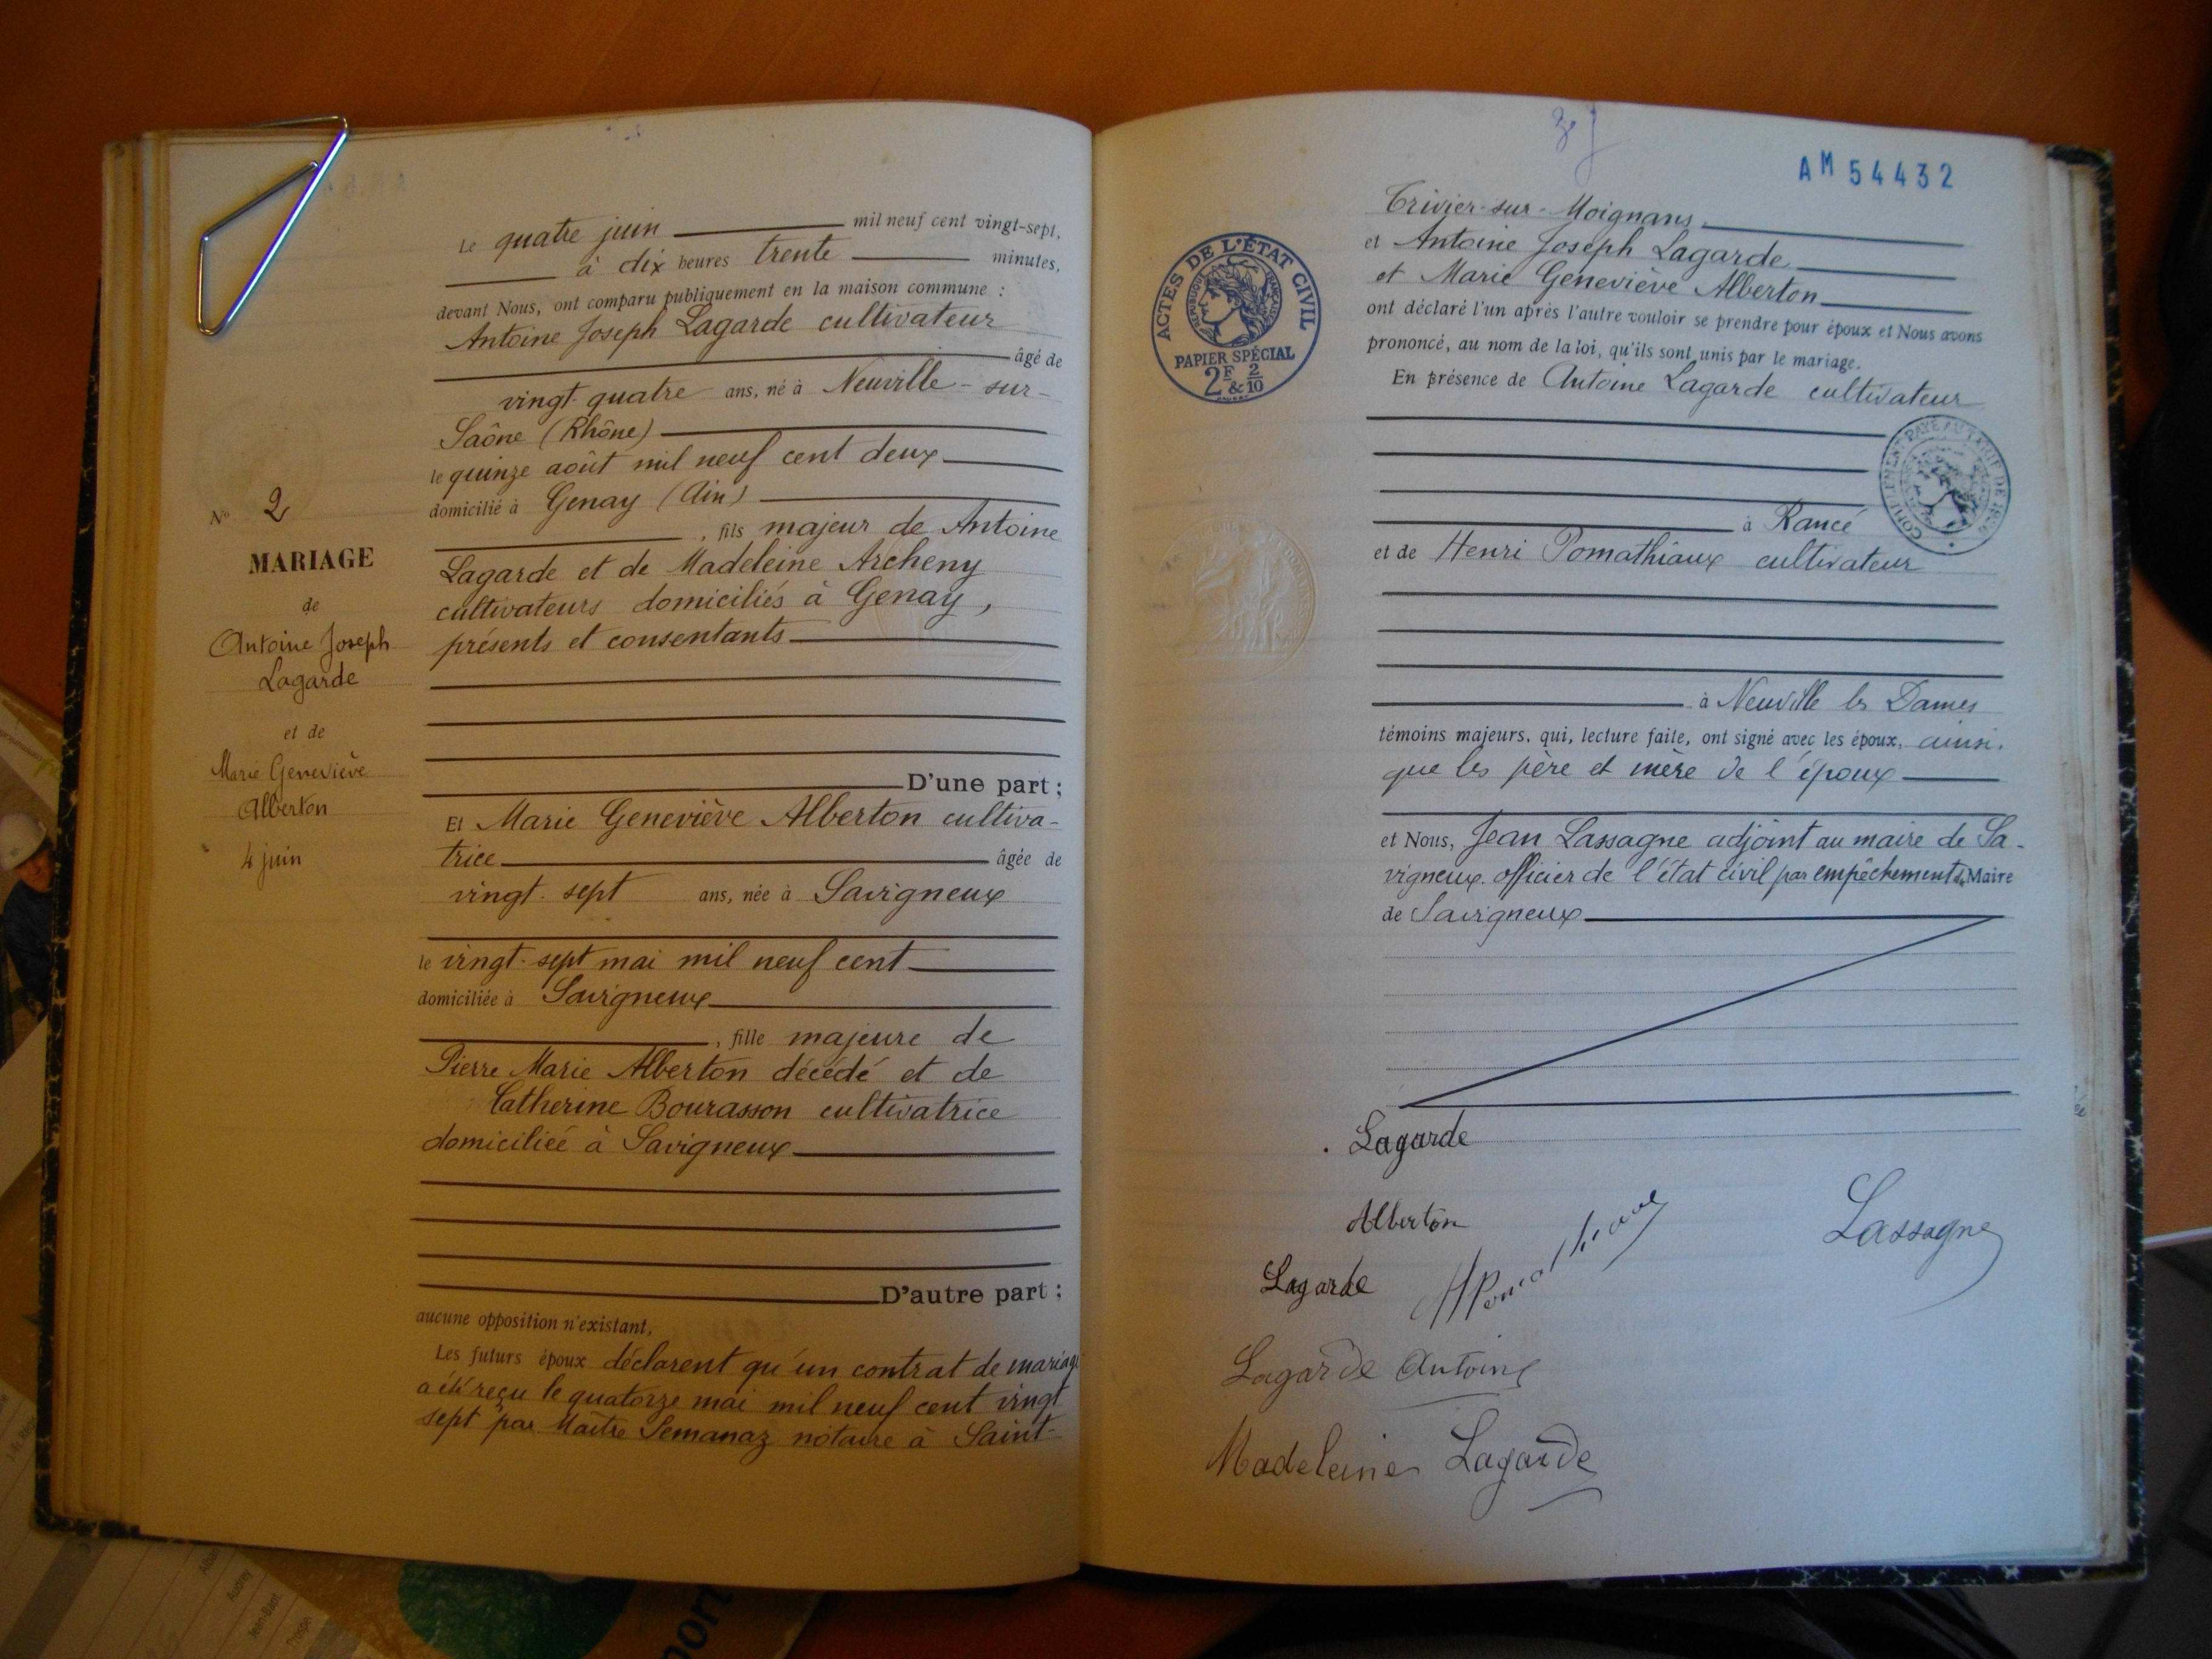 Le quatre juin mil neuf cent vingt-sept,
à dix heures trente minutes,
devant Nous, ont comparu publiquement en la maison commune :
Antoine Joseph Lagarde cultivateur
âgé de
vingt-quatre ans, né à Neuville-sur-
Saône (Rhône)
le quinze août mil neuf cent deux
domicilié à Genay (Ain)
, fils majeur de Antoine
Lagarde et de Madeleine Archeny
cultivateurs domiciliés à Genay,
présents et consentants
D'une part ;
Et Marie Geneviève Alberton cultiva-
trice âgée de
vingt-sept ans, née à Savigneux
le vingt-sept mai mil neuf cent
domiciliée à Savigneux
, fille majeure de
Pierre Marie Alberton décédé et de
Catherine Bourasson cultivatrice
domiciliée à Savigneux
D'autre part ;
aucune opposition n'existant,
Les futurs époux déclarent qu'un contrat de mariage
a été reçu le quatorze mai mil neuf cent vingt
sept par Maître Semanaz notaire à Saint-
No 2
MARIAGE
de
Antoine Joseph
Lagarde
et de
Marie Geneviève
Alberton
4 juin
AM 54432
Trivier-sur-Moignans
et Antoine Joseph Lagarde
et Marie Geneviève Alberton
ont déclaré l'un après l'autre vouloir se prendre pour époux et Nous avons
prononcé, au nom de la loi, qu'ils sont unis par le mariage.
En présence de Antoine Lagarde cultivateur
à Rancé
et de Henri Pomathiaux cultivateur
à Neuville les Dames
témoins majeurs, qui, lecture faite, ont signé avec les époux, ainsi
que les père et mère de l'époux
et Nous, Jean Lassagne adjoint au maire de Sa-
vigneux officier de l'état civil par empêchement du Maire
de Savigneux
ACTES DE L'ÉTAT CIVIL
RÉPUBLIQUE FRANÇAISE
PAPIER SPÉCIAL
2F & 2/10
Lagarde
Alberton
Lassagne
Lagarde
HPomathiaux
Lagarde Antoine
Madeleine Lagarde